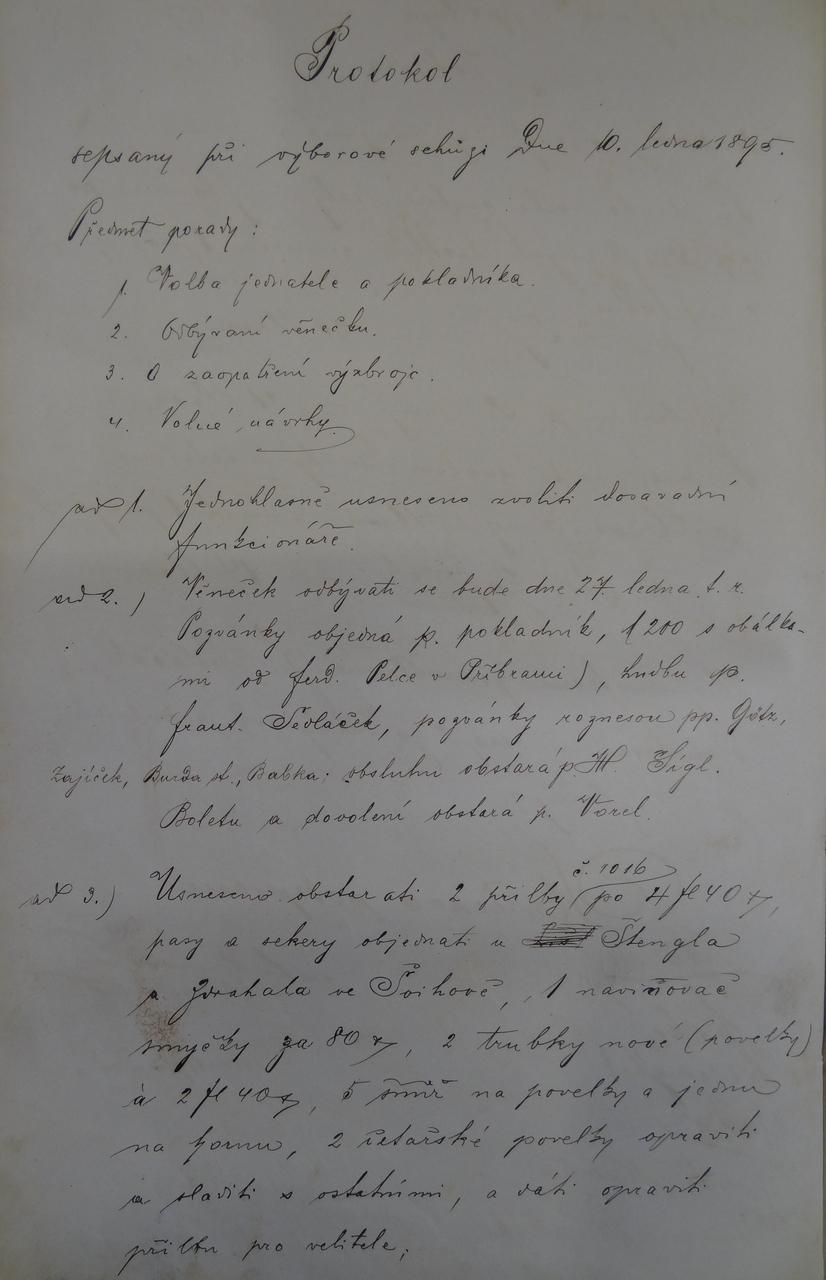 Protokol
sepsaný při výborové schůzi Dne 10. ledna 1895.
Předmět porady:
1. Volba jednatele a pokladníka.
2. Odbývaní věnečku.
3. O zaopatření výzbroje.
4. Volné návrhy.
ad 1. Jednohlasně usneseno zvoliti dosavadní
funkcionáře.
ad 2.) Věneček odbývati se bude dne 27. ledna t. r.
Pozvánky objedná p. pokladník, (200 s obálka-
mi od ferd. Pelce v Příbrami), hudbu p.
frant. Sedláček, pozvánky roznesou pp. Götz,
Zajíček, Burda st., Babka; obsluhu obstará p. M. Sígl.
Boletu a dovolení obstará p. Vorel.
č. 1016
ad 3.) Usneseno obstarati 2 přilby po 4 fl 40 x,
pasy a sekery objednati u Štengla
a Zdrahala ve Švihově, 1 naviňovač
smyčky za 80 x, 2 trubky nové (povelky)
à 2 fl 40 x, 5 šňůř na povelky a jednu
na hornu, 2 četařské povelky opraviti
a sladiti s ostatními, a dáti opraviti
přilbu pro velitele;